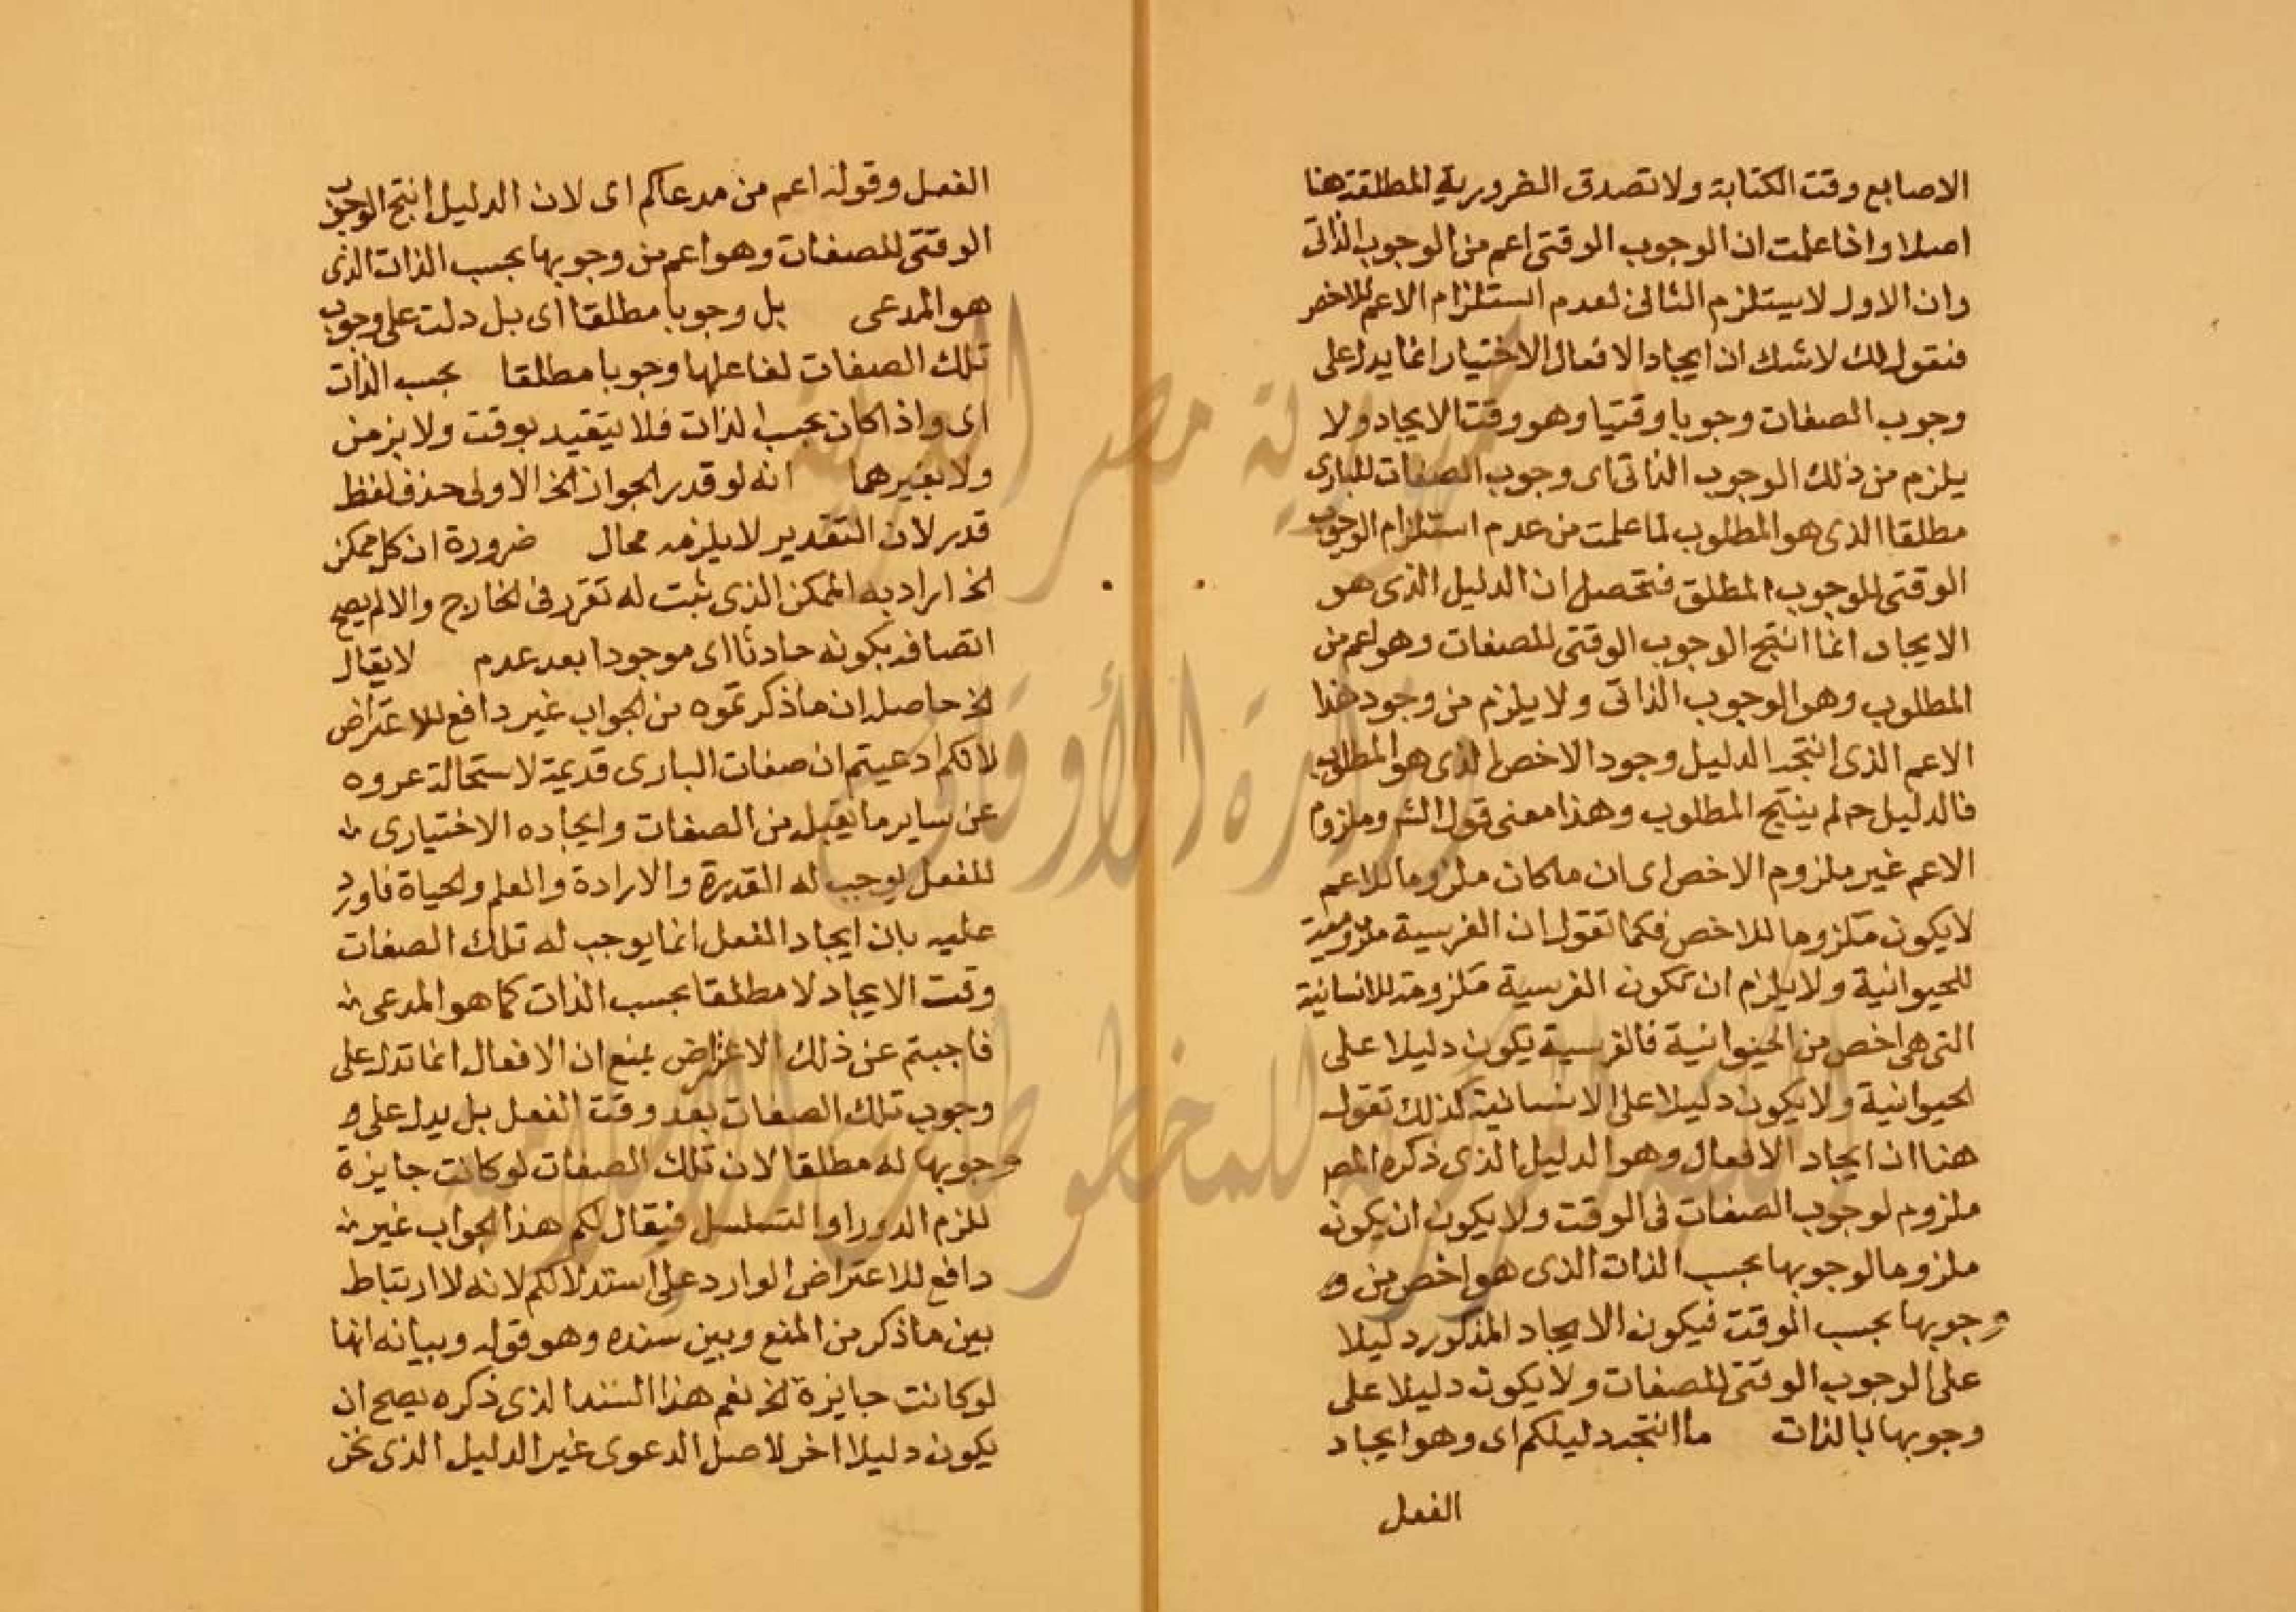 الاصابع وقت الكتابة ولا تصدق الضرورية المطلقة هنا
اصلا واذا علمت ان الوجوب الوقتى اعم من الوجوب الذاتى
وان الاول لا يستلزم الثانى لعدم استلزام الاعم للاخص
فنقول لك لا شك ان ايجاد الافعال الاختيار انما يدل على
وجوب الصفات وجوبا وقتيا وهو وقت الايجاد ولا
يلزم من ذلك الوجوب الذاتى اى وجوب الصفات للبارى
مطلقا الذى هو المطلوب لما علمت من عدم استلزام الوجوب
الوقتى للوجوب المطلق فتحصل ان الدليل الذى هو
الايجاد انما انتج الوجوب الوقتى للصفات وهو اعم من
المطلوب وهو الوجوب الذاتى ولا يلزم من وجود هذا
الاعم الذى انتجه الدليل وجود الاخص الذى هو المطلوب
فالدليل ح لم ينتج المطلوب وهذا معنى قول الش وملزوم
الاعم غير ملزوم الاخص اى ان ما كان ملزوما للاعم
لا يكون ملزوما للاخص فكما تقول ان الفرسية ملزومة
للحيوانية ولا يلزم ان تكون الفرسية ملزومة للانسانية
التى هى اخص من الحيوانية فالفرسية يكون دليلا على
الحيوانية ولا يكون دليلا على الانسانية لذلك تقول
هنا ان ايجاد الافعال وهو الدليل الذى ذكره المص
ملزوم لوجوب الصفات فى الوقت ولا يكون ان يكون
ملزوما لوجوبها بحسب الذات الذى هو اخص من و
وجوبها بحسب الوقت فيكون الايجاد المذكور دليلا
على الوجوب الوقتى للصفات ولا يكون دليلا على
وجوبها بالذات ما انتجه دليلكم اى وهو ايجاد
الفعل
الفعل وقوله اعم من مدعاكم اى لان الدليل انتج الوجوب
الوقتى للصفات وهو اعم من وجوبها بحسب الذات الذى
هو المدعى بل وجوبا مطلقا اى بل دلت على وجوب
تلك الصفات لفاعلها وجوبا مطلقا بحسب الذات
اى واذا كان بحسب الذات فلا يتقيد بوقت ولا بزمن
ولا بغيرهما انه لو قدر الجواز الخ الاولى حذف لفظ
قدر لان التقدير لا يلزمه محال ضرورة ان كل ممكن
الخ اراد به الممكن الذى ثبت له تقرر فى الخارج والا لم يصح
اتصافه بكونه حادثا اى موجودا بعد عدم لا يقال
الخ حاصله ان ما ذكرتموه من الجواب غير دافع للاعتراض
لانكم ادعيتم ان صفات البارى قديمة لاستحالة عروه
عن ساير ما يقبل من الصفات وايجاده الاختيارى
للفعل يوجب له القدرة والارادة والعلم والحياة فاورد
عليه بان ايجاد الفعل انما يوجب له تلك الصفات
وقت الايجاد لا مطلقا بحسب الذات كما هو المدعى
فاجبتم عن ذلك الاعتراض بمنع ان الافعال انما تدل على
وجوب تلك الصفات بقد وقت الفعل بل يدل على و
وجوبها له مطلقا لان تلك الصفات لو كانت جايزة
للزم الدور او التسلسل فيقال لكم هذا الجواب غير
دافع للاعتراض الوارد على استدلالكم لانه لا ارتباط
بين ما ذكر من المنع وبين سنده وهو قوله وبيانه انها
لو كانت جايزة الخ نعم هذا السند الذى ذكره يصح ان
يكون دليلا اخر لاصل الدعوى غير الدليل الذى نحن
جمهورية مصر العربية
وزارة الأوقاف
المكتبة المركزية للمخطوطات الإسلامية